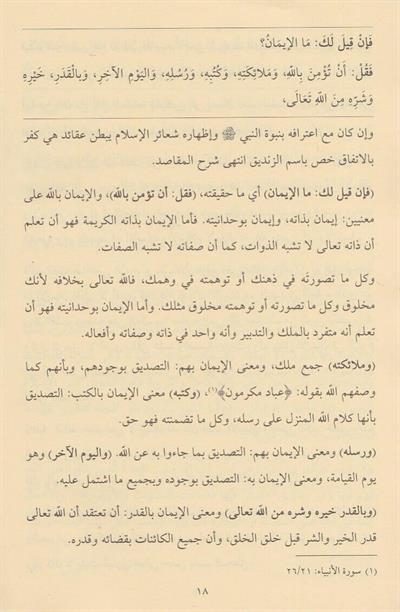 فَإِنْ قِيلَ لَكَ: مَا الإِيمَانُ؟
فَقُلْ: أَنْ تُؤْمِنَ بِاللَّهِ، وَمَلَائِكَتِهِ، وَكُتُبِهِ، وَرُسُلِهِ، وَاليَوْمِ الآخِرِ، وَبِالْقَدَرِ، خَيْرِهِ
وَشَرِّهِ مِنَ اللَّهِ تَعَالَى،
وإن كان مع اعترافه بنبوة النبي ﷺ وإظهاره شعائر الإسلام يبطن عقائد هي كفر
بالاتفاق خص باسم الزنديق انتهى شرح المقاصد.
(فإن قيل لك: ما الإيمان) أي ما حقيقته، (فقل: أن تؤمن بالله)، والإيمان بالله على
معنيين: إيمان بذاته، وإيمان بوحدانيته. فأما الإيمان بذاته الكريمة فهو أن تعلم
أن ذاته تعالى لا تشبه الذوات، كما أن صفاته لا تشبه الصفات.
وكل ما تصورتَه في ذهنك أو توهمته في وهمك، فالله تعالى بخلافه لأنك
مخلوق وكل ما تصورته أو توهمته مخلوق مثلك. وأما الإيمان بوحدانيته فهو أن
تعلم أنه متفرد بالملك والتدبير وأنه واحد في ذاته وصفاته وأفعاله.
(وملائكته) جمع ملك، ومعنى الإيمان بهم: التصديق بوجودهم، وبأنهم كما
وصفهم الله بقوله: ﴿عباد مكرمون﴾(١)، (وكتبه) معنى الإيمان بالكتب: التصديق
بأنها كلام الله المنزل على رسله، وكل ما تضمنته فهو حق.
(ورسله) ومعنى الإيمان بهم: التصديق بما جاءوا به عن الله. (واليوم الآخر) وهو
يوم القيامة، ومعنى الإيمان به: التصديق بوجوده وبجميع ما اشتمل عليه.
(وبالقدر خيره وشره من الله تعالى) ومعنى الإيمان بالقدر: أن تعتقد أن الله تعالى
قدر الخير والشر قبل خلق الخلق، وأن جميع الكائنات بقضائه وقدره.
(١) سورة الأنبياء: ٢٦/٢١
١٨